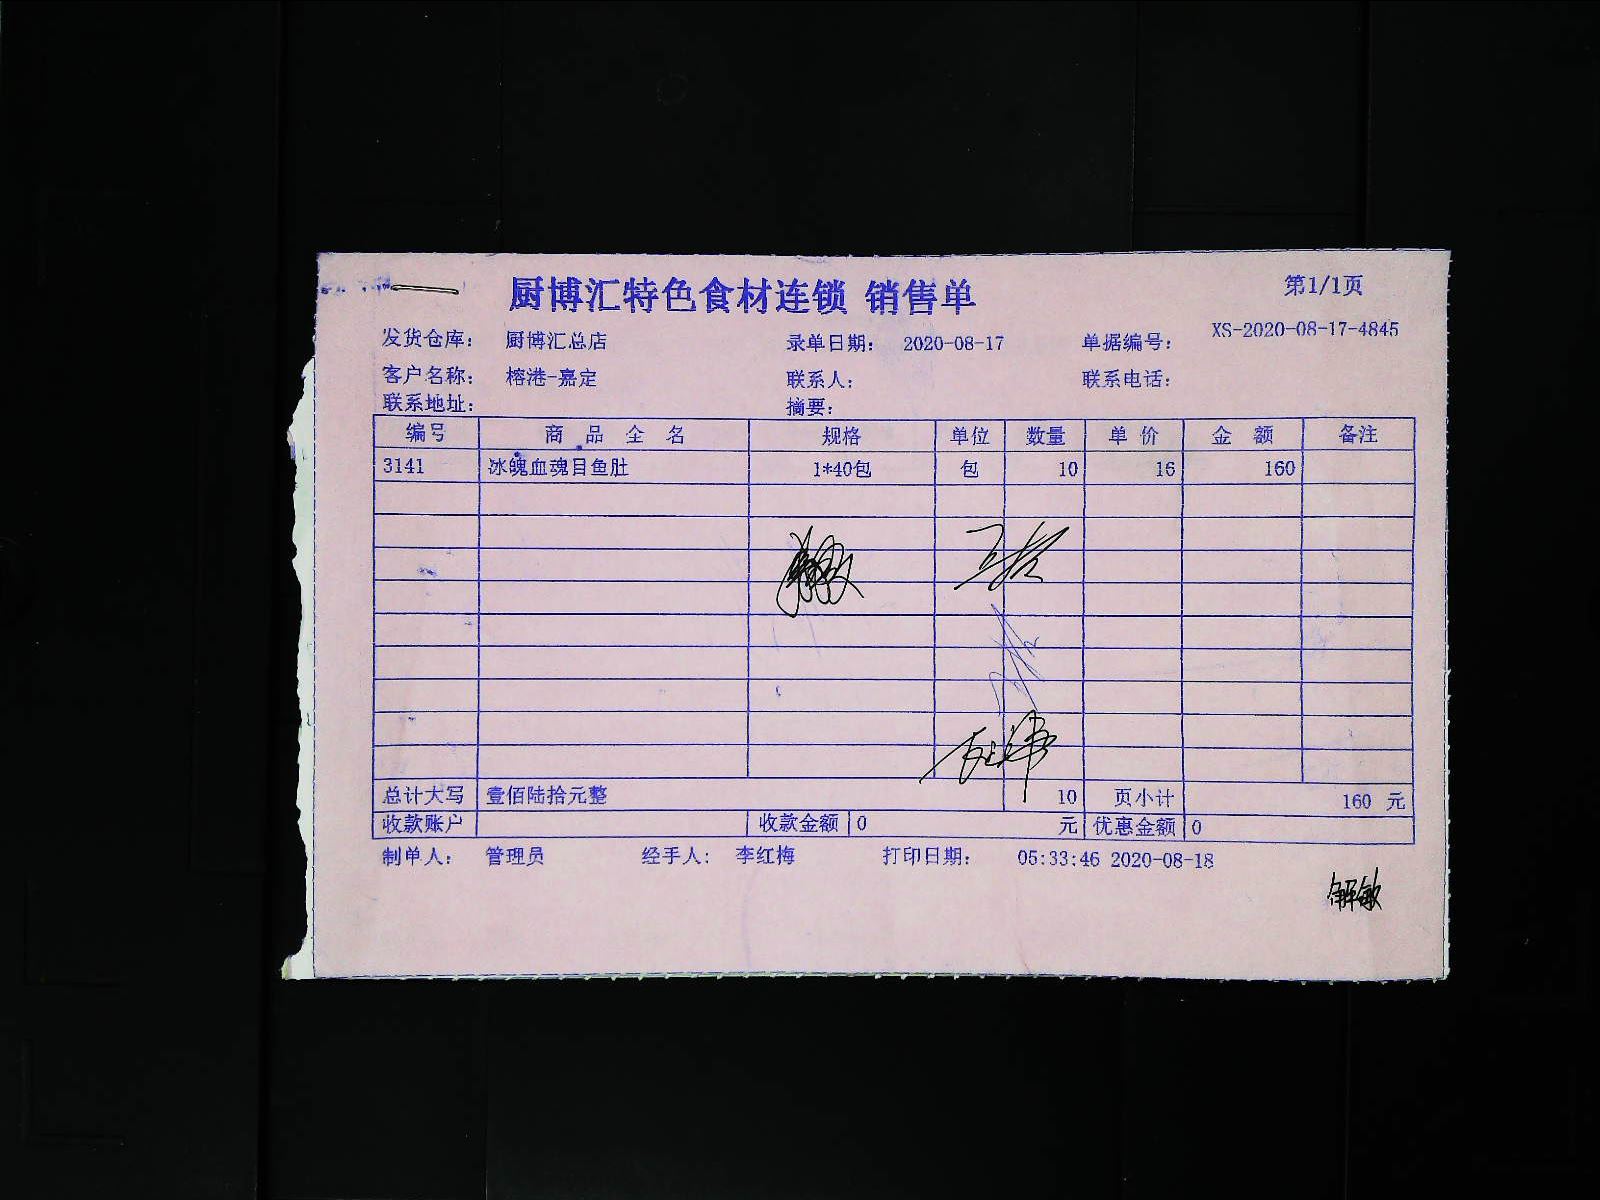 厨博汇特色食材连锁 销售单
第1/1页
发货仓库： 厨博汇总店 录单日期： 2020-08-17 单据编号： XS-2020-08-17-4845
客户名称： 榕港-嘉定 联系人： 联系电话：
联系地址： 摘要：
编号 商品全名 规格 单位 数量 单价 金额 备注
3141 冰魄血魂目鱼肚 1*40包 包 10 16 160
总计大写 壹佰陆拾元整 10 页小计 160 元
收款账户 收款金额 0 元 优惠金额 0
制单人： 管理员 经手人： 李红梅 打印日期： 05:33:46 2020-08-18
解敏